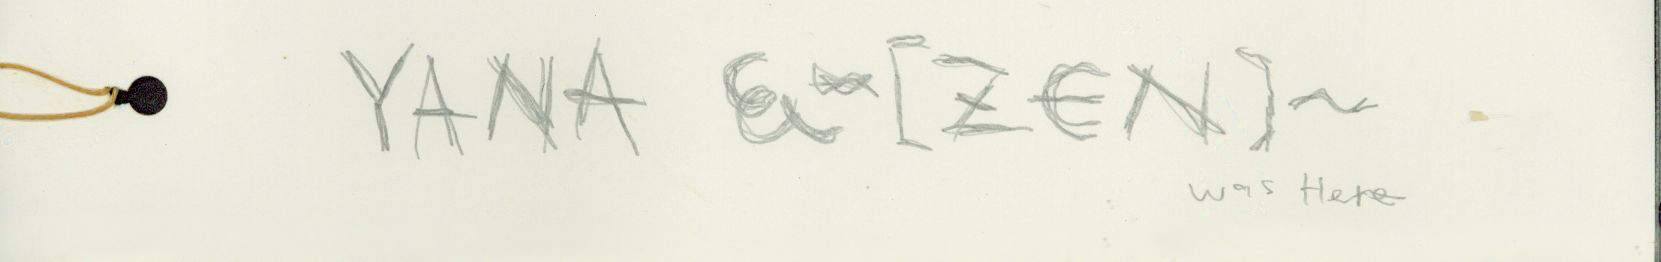 YANA & ~[ZEN]~
was Here